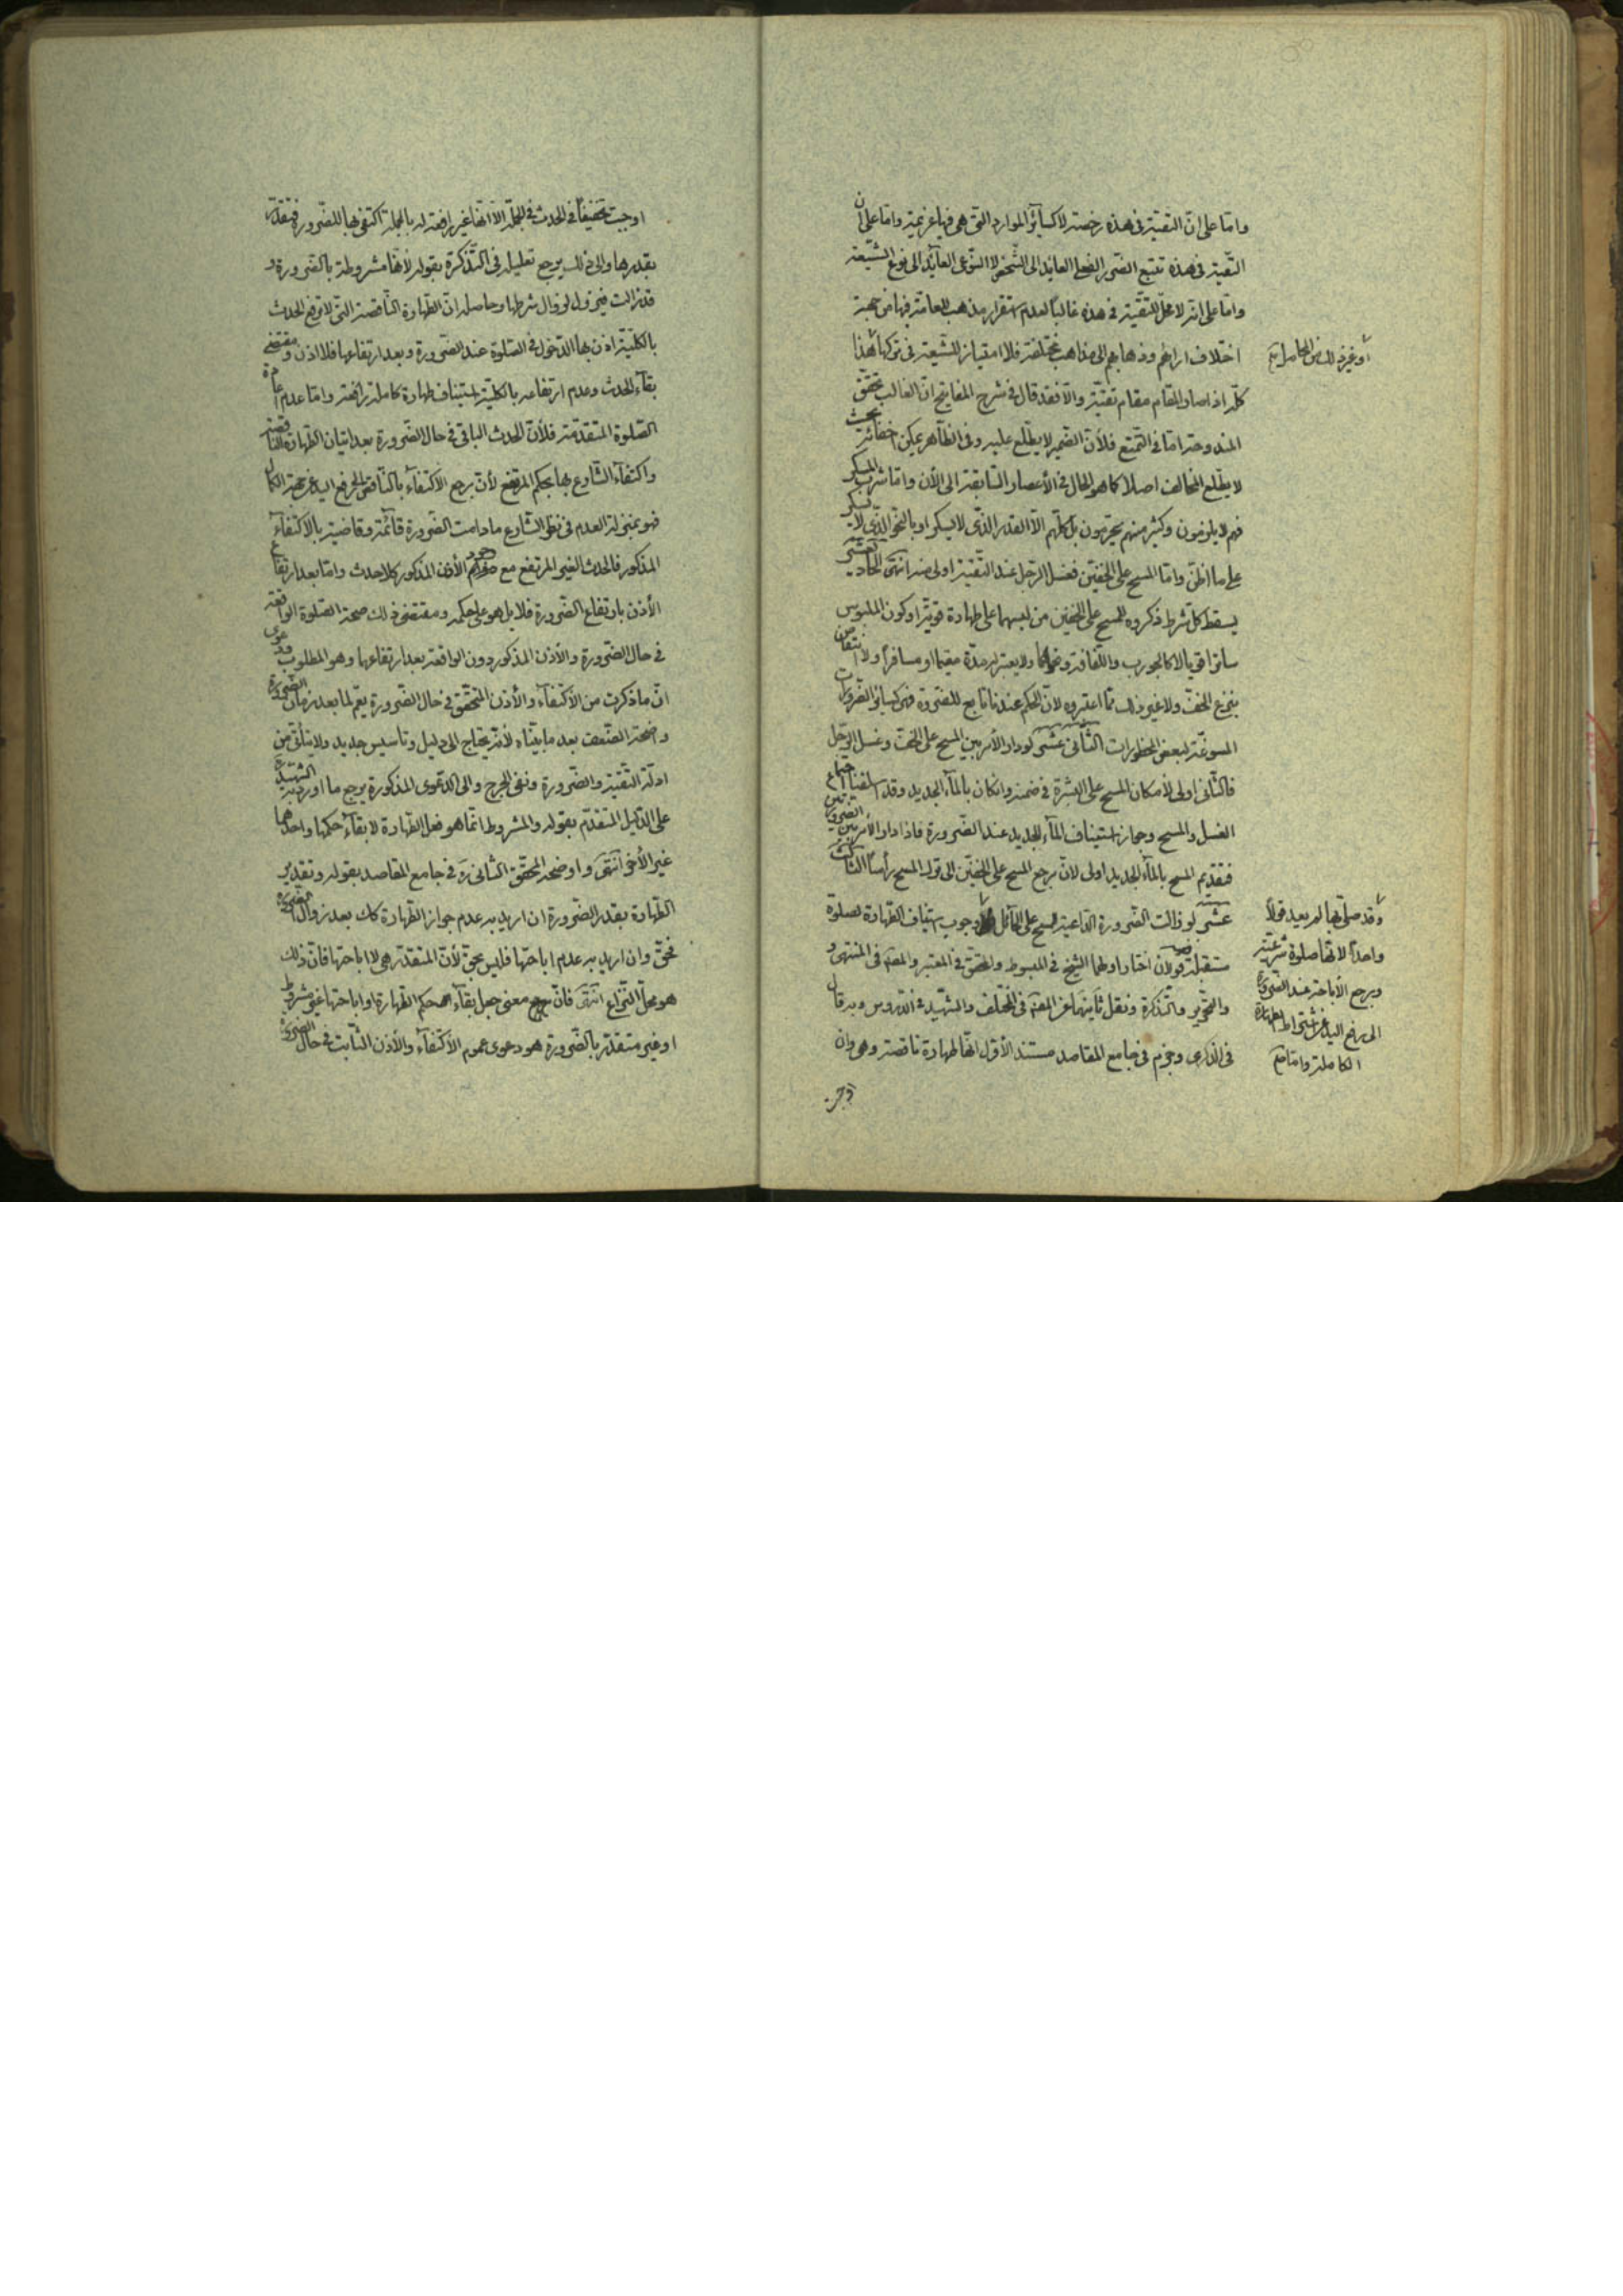 واما على ان التقية في هذه رخصة لا كسائر الموارد التي هي فيها عزيمة واما على ان
التقية في هذه تتبع الضرر الفعلي العايد الى الشخص لا النوعي العايد الى نوع الشيعة
واما على انه لا محل للتقية في هذه غالبا لعدم استقرار مذهب العامة فيها من جهة
اختلاف ارائهم وذهابهم الى مذاهب مختلفة فلا امتياز للشيعة في تركها هذا
كله اذا صار المقام مقام تقية والا فقد قال في شرح المفاتيح ان الغالب تحقق
المندوحة اما في التمتع فلأن الضمير لا يطلع عليه وفي الظاهر يمكن اخفائه بحيث
لا يطلع المخالف اصلا كما هو الحال في الأعصار السابقة الى الأن واما شرب المسكر
فهم لا يلزمون وكثير منهم يحرمون بل كلهم الا القدر الذي لا يسكر او بالنحو الذي لا يسكر
على ما اظن واما المسح على الخفين فغسل الرجل عند التقية اولى منه انتهى الحادي عشر
يسقط كل شرط ذكروه للمسح على الخفين من لبسهما على طهارة قوية او كون الملبوس
ساترا قويا لا كالجورب واللفافة ولا يعتبر مدة مقيما او مسافرا ولا انتقاض
بنزع الخف ولا غير ذلك مما اعتبروه لأن الحكم عندنا تابع للضرورة فهي كسائر الضرورات
المسوغة لبعض المحظورات الثاني عشر لو دار الأمر بين المسح على الخف وغسل الرجل
فالثاني اولى لأمكان المسح على البشرة في ضمنه وانكان بالماء الجديد وقد اسلفنا اجتماع
الغسل والمسح وجواز استيناف الماء الجديد عند الضرورة فاذا دار الأمر بين الضرورتين
فتقديم المسح بالماء الجديد اولى لان مرجع المسح على الخفين الى ترك المسح رأسا الثالث
عشر لو زالت الضرورة الداعية للمسح على الحائل وجوب استيناف الطهارة لصلوة
مستقبلة قولان اختار اولهما الشيخ في المبسوط والمحقق في المعتبر والمصنف في المنتهى و
والتحرير والتذكرة ونقل ثانيهما عن المصنف في المختلف والشهيد في الدروس وبه قال
في الذكرى وجزم في جامع المقاصد مستند الأول انها طهارة ناقصة وهي وان
واحدا لانها صلوة شرعية
الكاملة واما
اوجبت تخفيفا في الحدث في الجملة الا انها غير رافعة له بالجملة اكتفى بها للضرورة فتتقدر
بقدرها والى ذلك يرجع تعليله في التذكرة بقوله لانها مشروطة بالضرورة و
قد زالت فيزول لزوال شرطها وحاصله ان الطهارة الناقصة التي لا ترفع الحدث
بالكلية اذن بها الدخول في الصلوة عند الضرورة وبعد ارتفاعها فلا اذن ومقتضى
بقاء الحدث وعدم ارتفاعه بالكلية استيناف طهارة كاملة رافعة واما عدم اعادة
الصلوة المتقدمة فلأن الحدث الباقي في حال الضرورة بعد اتيان الطهارة الناقصة
واكتفاء الشارع بها بحكم المرتفع لأن مرجع الأكتفاء بالناقص الى رفع اليد عن جهة الكمال
فهو بمنزلة العدم في نظر الشارع ما دامت الضرورة قائمة وقاضية بالاكتفاء
المذكور فالحدث الغير المرتفع مع وجود الأذن المذكور كلا حدث واما بعد ارتفاع
الأذن بارتفاع الضرورة فلا بل هو على حكمه ومقتضى ذلك صحة الصلوة الواقعة
في حال الضرورة والأذن المذكور دون الواقعة بعد ارتفاعها وهو المطلوب ودعوى
ان ما ذكرت من الأكتفاء والأذن المتحقق في حال الضرورة يعم لما بعد زمان الضرورة
واضحة الضعف بعد ما بيناه لأنه يحتاج الى دليل وتاسيس جديد ولا يتأتى من
ادلة التقية والضرورة ونفي الحرج والى الدعوى المذكورة يرجع ما اورد به الشهيد
على الدليل المتقدم بقوله والمشروط انما هو فعل الطهارة لا بقاء حكمها واحدهما
غير الأخر انتهى واوضحه المحقق الثاني ره في جامع المقاصد بقوله وتقدير
الطهارة بقدر الضرورة ان اريد به عدم جواز الطهارة كك بعد زوال الضرورة
فحق وان اريد به عدم اباحتها فليس بحق لأن المتقدر هي لا اباحتها فان ذلك
هو محل النزاع انتهى فان مرجع معنى جعل بقاء حكم الطهارة او اباحتها غير مشروط
او غير متقدر بالضرورة هو دعوى عموم الأكتفاء والأذن الثابت في حال الضرورة